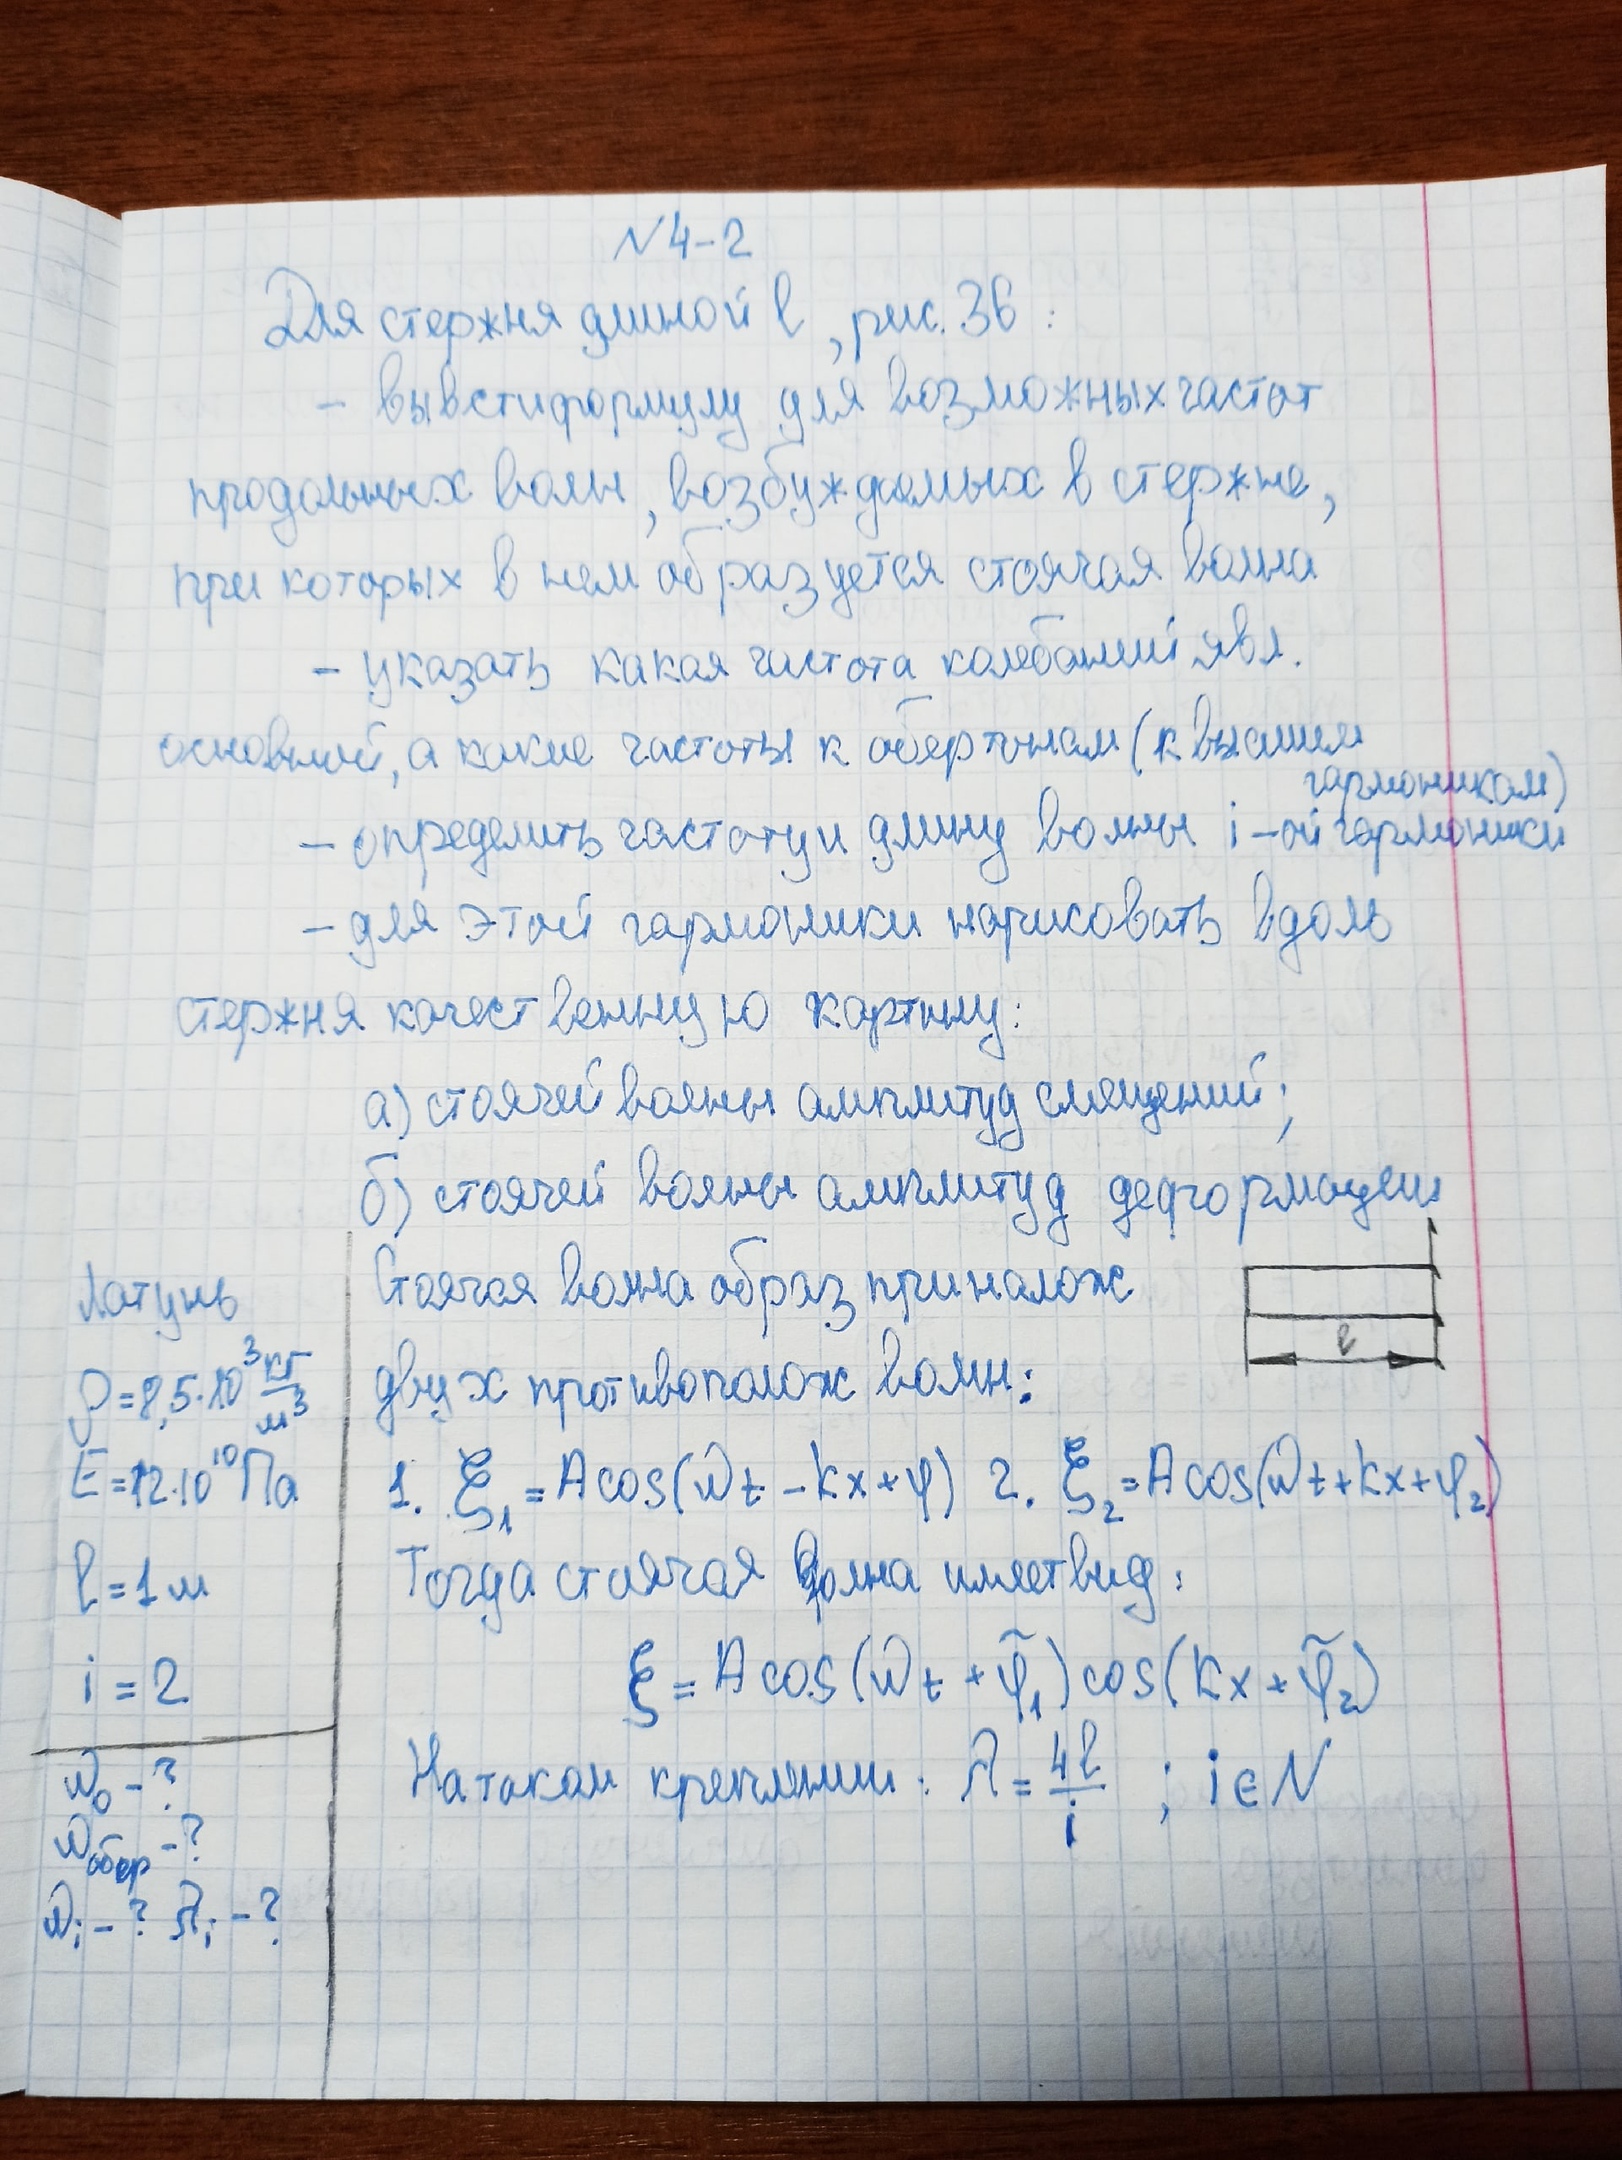 N4-2
Для стержня длиной l, рис. 3б:
- вывсти формулу для возможных частот
продольных волн, возбуждаемых в стержне,
при которых в нем образуется стоячая волна
- указать какая частота колебаний явл.
основной, а какие частоты к обертонам (к высшим
гармоникам)
- определить частоту и длину волны i-ой гармоники
- для этой гармоники нарисовать вдоль
стержня качественную картину:
а) стоячей волны амплитуд смещений;
б) стоячей волны амплитуд деформации
Латунь
ρ = 8,5·10³ кг/м³
E = 12·10¹⁰ Па
l = 1 м
i = 2
ω₀ - ?
ω обер - ?
ωᵢ - ? λᵢ - ?
Стоячая волна образ при налож
двух противополож волн:
l
1. ξ₁ = A cos(ωt - kx + φ) 2. ξ₂ = A cos(ωt + kx + φ₂)
Тогда стоячая волна имеет вид:
ξ = A cos(ωt + φ̃₁) cos(kx + φ̃₂)
На таком креплении: λ = 4l/i ; i ∈ N